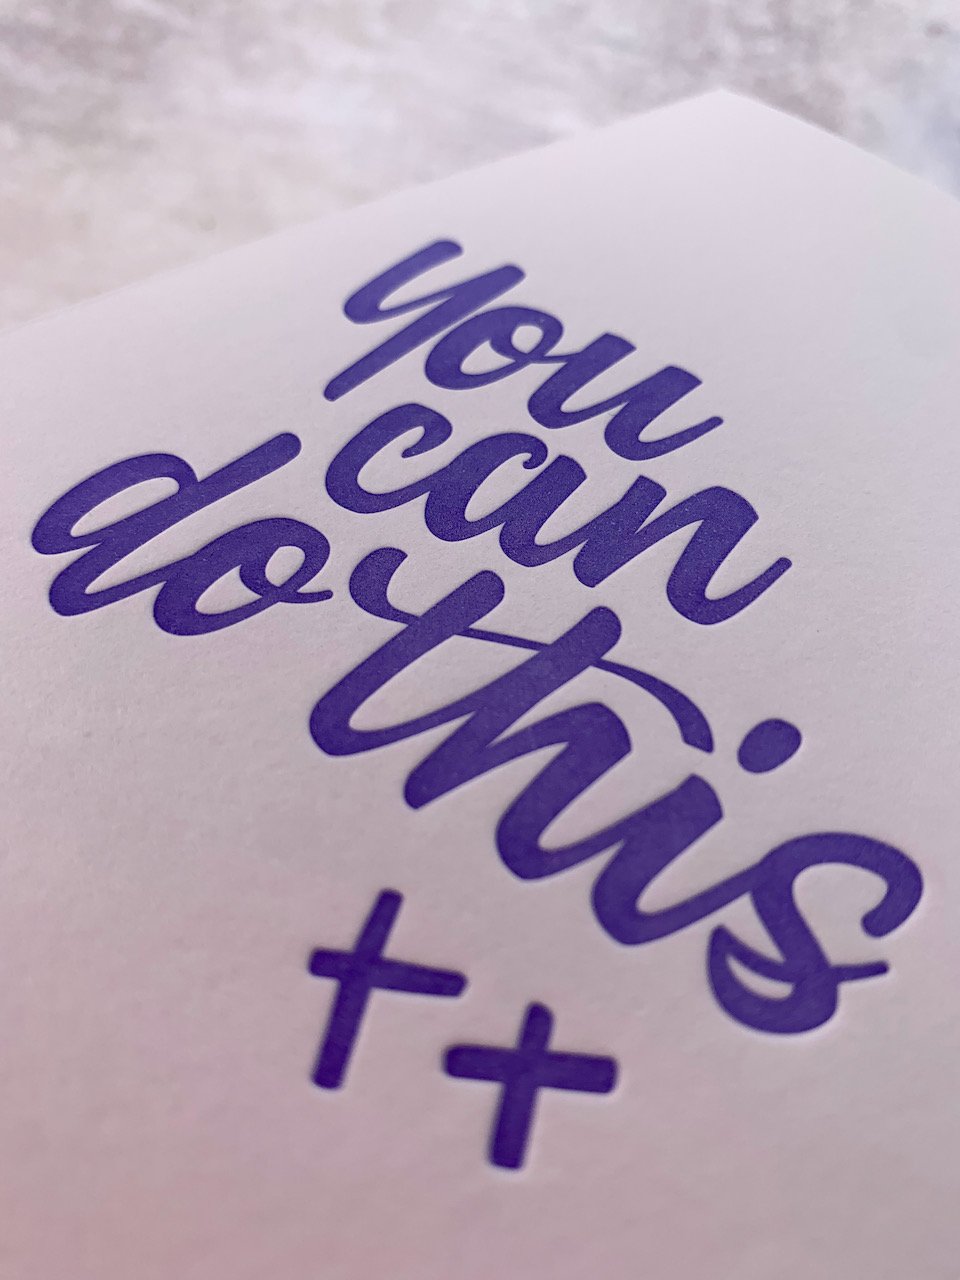 you
can
do this
xx